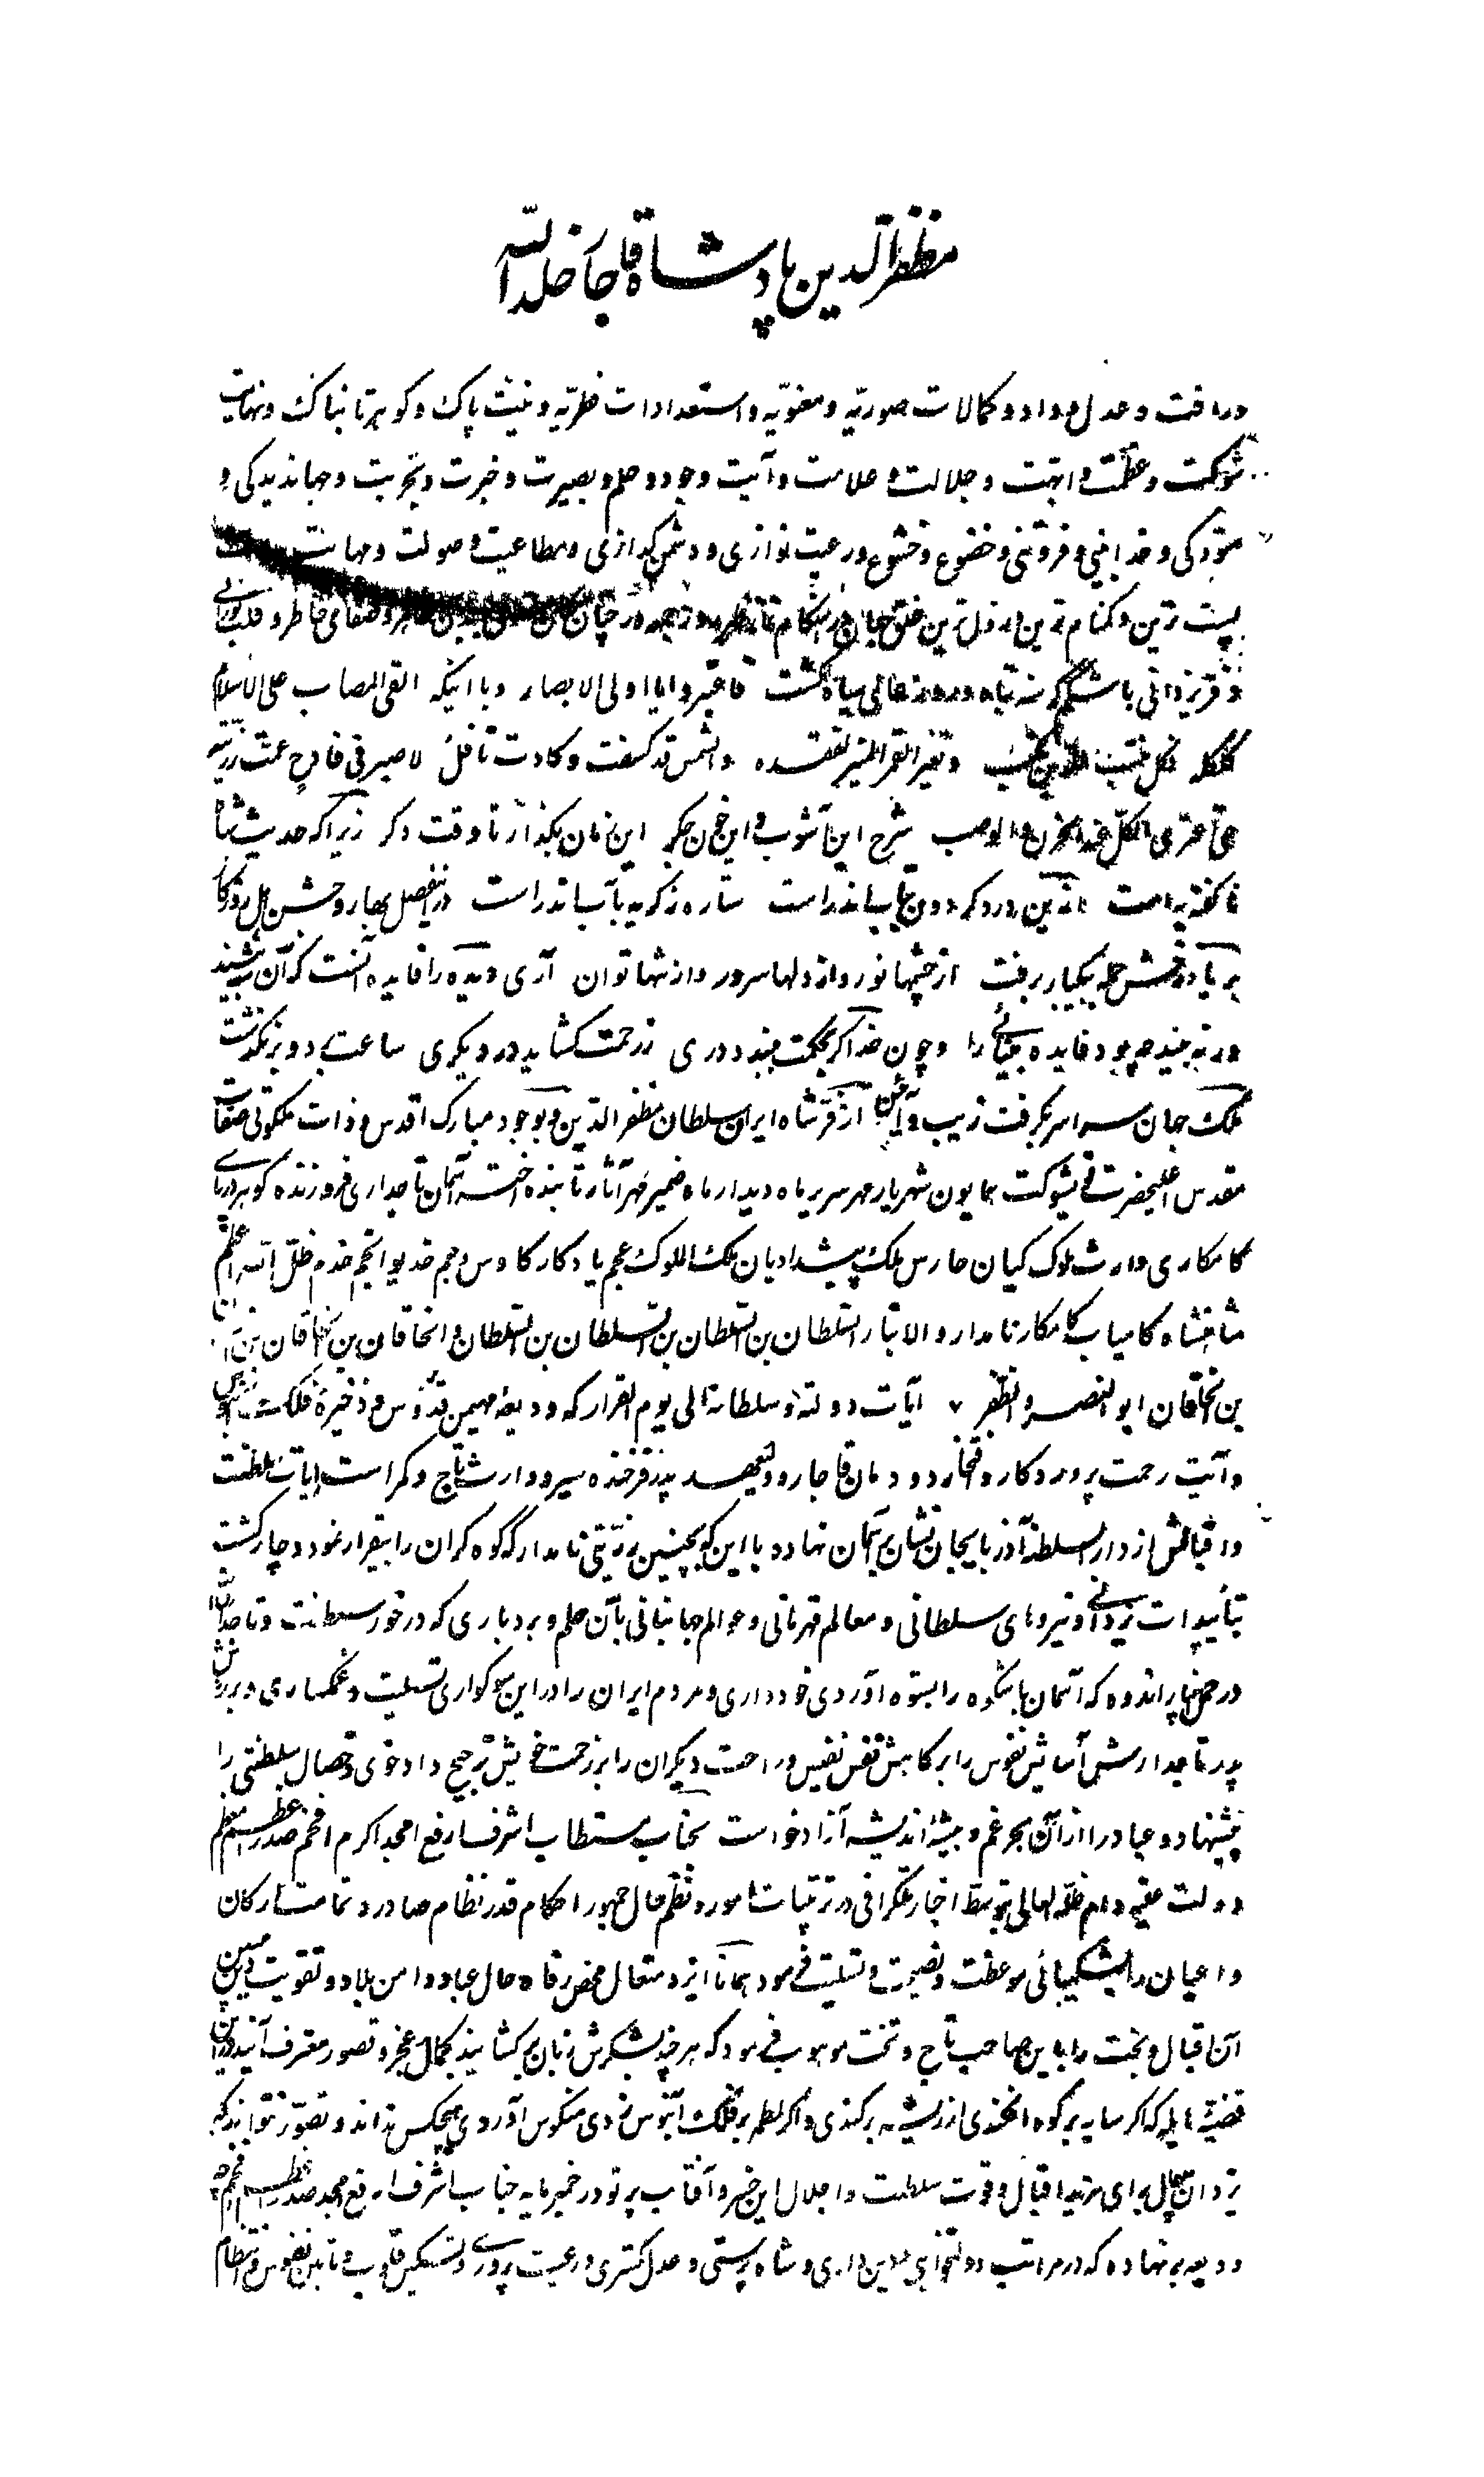 مظفرالدین پادشاه قاجار خلد الله
و رافت و عدل و داد و کمالات صوریه و معنویه و استعدادات فطریه و نیت پاک و گوهر تابناک و نهایت
شوکت و عظمت و ابهت و جلالت و علامت و آیت وجود و حلم و بصیرت و خبرت و تجربت و جهاندیدگی و
ستودگی و خدابینی و فروتنی و خضوع و خشوع و رعیت نوازی و دشمن گدازی و مطاعیت و صولت و مهابت
پست ترین و گمنام ترین و رذل ترین خلق جهان در هنگام و صفای خاطر و قلب نورانی
و فر یزدانی با شکم گرسنه تباه و روزعالمی سیاه گشت فاعتبروا یا اولی الابصار و با اینکه القی المصاب علی الاسلام
کلکله فکل و تغیر القمر المنیر لفقده والشمس قد کسفت و کادت تافل لا صبر فی فادح عمت رزیته
حتی اعتری الکل الحزن والوصب شرح این آشوب و این خون جگر این زمان بگذار تا وقت دگر زیرا که حدیث ما
ناگفته به است ستاره در گریه بآسیا ندر است در این فصل بهار و جشن اهل روزگار
بر باد رفت از چشمها نور و از دلها سرور و از تنها توان آری دیده را فایده آنست که آن بر بیند
ور نه بیند چه بود فایده بینائی را و چون خدا گر بحکمت ببندد دری ز رحمت گشاید در دیگری ساعت دو بر نگذشت
ملک جهان سراسر بگرفت زیب و آئین از فر شاه ایران سلطان مظفر الدین و بوجود مبارک اقدس و ذات ملکوتی صفات
مقدس اعلیحضرت قویشوکت همایون شهریار مهر سریر ماه دیدار ماه ضمیر مهر آثار تابنده اختر آسمان تاجداری فروزنده گوهر دریای
کامکاری وارث ملوک کیان حارس ملک پیشدادیان ملک الملوک عجم یادگار کاوس و جم خدیو انجم خدم ظل الله اعظم
شاهنشاه کامیاب کامکار نامدار والاتبار السلطان بن السلطان بن السلطان بن السلطان والخاقان بن الخاقان بن
بن الخاقان ابو النصر والظفر آیات دولته و سلطانه الی یوم القرار که ودیعه مهیمن قدوس و ذخیره فلک
و آیت رحمت پروردگار و افتخار دودمان قاجار و ولیعهد پدر فرخنده سیر و وارث تاج و کمر است رایات سلطنت
و اقبالش از دارالسلطنه آذربایجان نشان بر آسمان نهاد و با این که بچنین رزیتی نامدار که کوه گران را بیقرار نمود دچار گشت
بتأییدات یزدانی و نیروهای سلطانی و معالم قهرمانی و عوالم جهانبانی بآن حلم و بردباری که در خور سلطنت و تاجداریست
در چنین بار اندوه که آسمان باشکوه را بستوه آوردی خودداری و مردم ایران را در این سوگواری تسلیت و غمگساری و بر روش
پدر تاجدارش آسایش نفوس را بر کاهش نفس نفیس و راحت دیگران را بر زحمت خویش ترجیح داد خوی و خصال سلطنتی را
پیشنهاد و عباد را از آن بحر غم و بیشه اندیشه آزاد خواست بجناب مستطاب اشرف ارفع امجد اکرم افخم صدر اعظم
دولت علیه دام ظله العالی بتوسط اخبار تلگرافی در ترتیبات امور و نظم حال جمهور احکام قدر نظام صادر و تمامت ارکان
و اعیان را بشکیبائی موعظت و نصیحت و تسلیت فرمود همانا ایزد متعال محض رفاه حال عباد و امن بلاد و تقویت دین مبین
آن اقبال و بخت را باین صاحب تاج و تخت موهوب فرمود که هر چند بشکرش زبان بر گشایند بکمال عجز و قصور معترف آیند و در این
قضیه هایله که اگر سایه بر کوه افکندی از ریشه بر کندی و اگر لطمه بر فلک آبنوس زدی منکوس آوردی هیچکس نداند و تصور نتواند که
یزدان برای مزید اقبال و قوت سلطنت و اجلال این خسرو آفتاب پرتو در خمیر مایه جناب اشرف ارفع امجد صدر اعظم افخم چه
ودیعه بر نهاده که در مراتب دولتخواهی و دین داری و شاه پرستی و عدل گستری و رعیت پروری و تسکین قلوب و تامین نفوس و انتظام